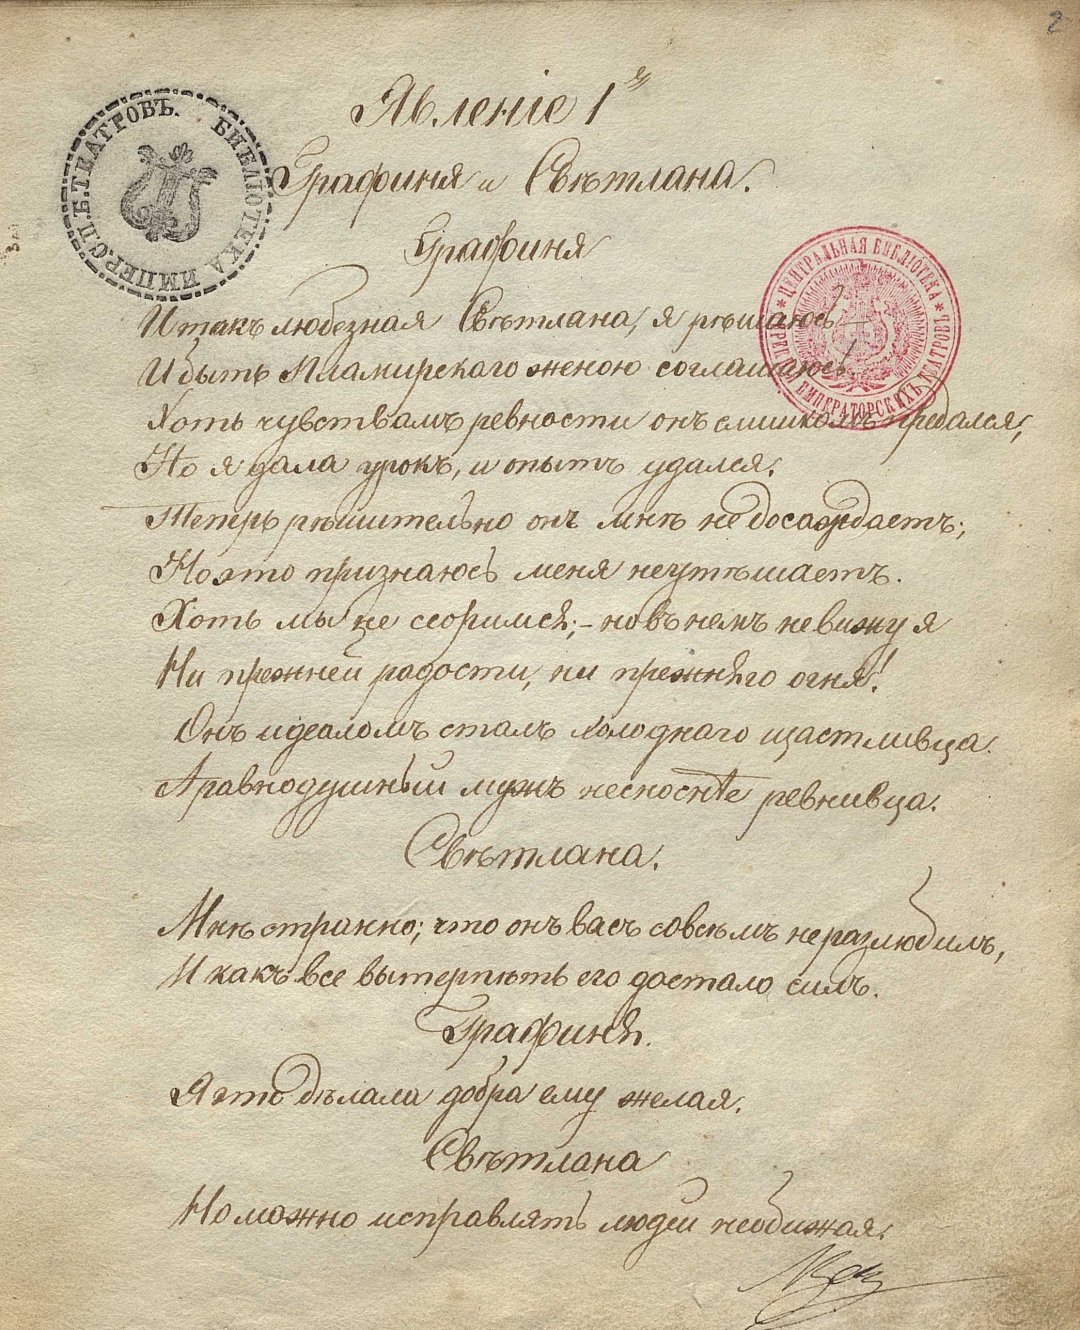 2
Явленіе 1<sup>е</sup>
Графиня и Свѣтлана.
Графиня
И такъ любезная Свѣтлана, я рѣшаюсь
И быть Пламирскаго женою соглашаюсь.
Хоть чувствамъ ревности онъ слишкомъ предался,
Но я дала урокъ, и опытъ удался.
Теперь рѣшительно онъ мнѣ не досаждаетъ;
Но это признаюсь меня неутѣшаетъ.
Хоть мы не ссоримся; – но въ немъ не вижу я
Ни прежней радости, ни прежняго огня!
Онъ идеаломъ сталъ холоднаго щастливца.
А равнодушный мужъ несноснѣе ревнивца.
Свѣтлана.
Мнѣ странно; что онъ васъ совсѣмъ не разлюбилъ,
И какъ все вытерпѣть его достало силъ.
Графиня.
Я это дѣлала добра ему желая.
Свѣтлана
Но можно исправлять людей необижая.
БИБЛІОТЕКА ИМПЕР. С. П. Б. ТЕАТРОВЪ.
ЦЕНТРАЛЬНАЯ БИБЛІОТЕКА
ИМПЕРАТОРСКИХЪ ТЕАТРОВЪ